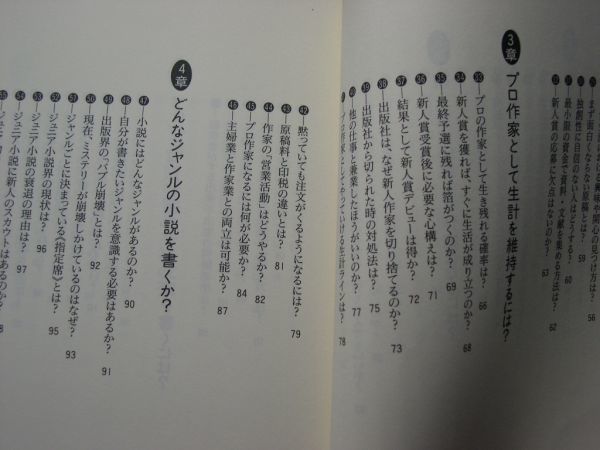 まず面白くならない原稿とは? 59
独創性に自信のない人はどうする? 60
最小限の資金で資料・文献を集める方法は? 62
32 新人賞の応募に欠点はないのか? 63
3章 プロ作家として生計を維持するには?
33 プロの作家として生き残れる確率は? 66
34 新人賞を獲れば、すぐに生活が成り立つのか? 68
35 最終予選に残れば箔がつくのか? 69
36 新人賞受賞後に必要な心構えは? 71
37 結果として新人賞デビューは得か? 72
38 出版社は、なぜ新人作家を切り捨てるのか? 73
39 出版社から切られた時の対処法は? 75
40 他の仕事と兼業したほうがいいのか? 77
プロ作家としてやっていける生計ラインは? 78
42 黙っていても注文がくるようになるには? 79
43 原稿料と印税の違いとは? 81
44 作家の「営業活動」はどうやるか? 82
45 プロ作家になるには何が必要か? 84
46 主婦業と作家業との両立は可能か? 87
4章 どんなジャンルの小説を書くか?
47 小説にはどんなジャンルがあるのか? 90
48 自分が書きたいジャンルを意識する必要はあるか? 91
49 出版界の「バブル崩壊」とは? 92
50 現在、ミステリーが崩壊しかけているのはなぜ? 93
51 ジャンルごとに決まっている《指定席》とは? 95
52 ジュニア小説界の現状は? 96
53 ジュニア小説の衰退の理由は? 97
54 ジュニア小説に新人のスカウトはあるのか?